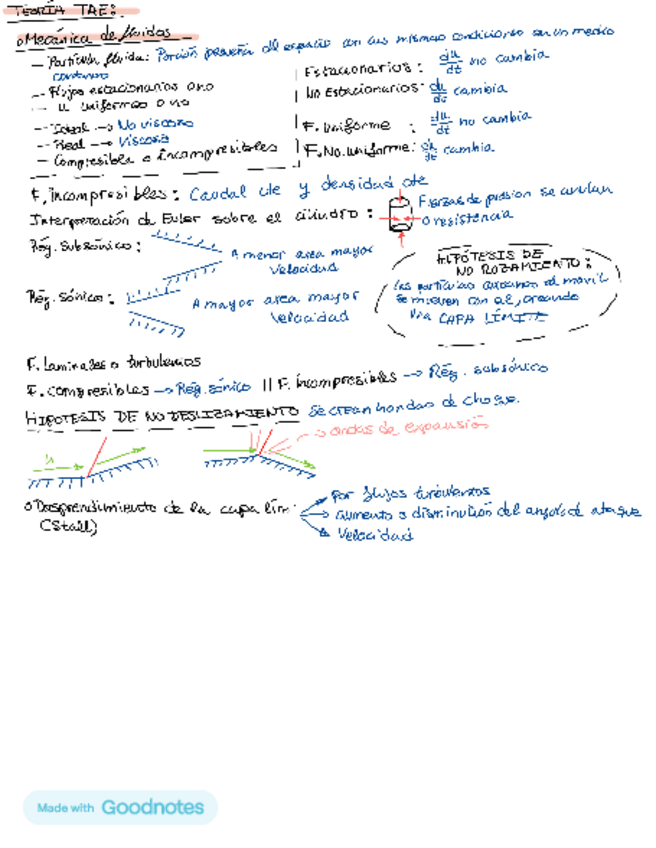 TEORÍA TAE:
o Mecánica de fluidos
— Partícula fluida: Porción pequeña del espacio con las mismas condiciones en un medio
continuo
— Flujos estacionarios o no
— " uniformes o no
— Ideal → No viscoso
— Real → Viscoso
— Compresibles o incompresibles
Estacionarios: du/dt no cambia
No Estacionarios: du/dt cambia
F. Uniforme : du/dt no cambia
F. No. uniforme: du/dt cambia
F. incompresibles: Caudal cte y densidad cte
Interpretación de Euler sobre el cilindro: Fuerzas de presion se anulan
0 resistencia
Rég. Subsónico: A menor area mayor
velocidad
Rég. Sónico: A mayor area mayor
velocidad
HIPÓTESIS DE
NO RODAMIENTO:
las particulas al movil
se mueven con el, creando
una CAPA LÍMITE
F. laminales o turbulentos
F. compresibles → Rég. sónico || F. incompresibles → Rég. subsónico
HIPOTESIS DE NO DESLIZAMIENTO Se crean hondas de choque.
→ ondas de expansión
o Desprendimiento de la capa lím:
(Stall)
Por flujos turbulentos
aumento o disminución del angulo de ataque
Velocidad
Made with Goodnotes